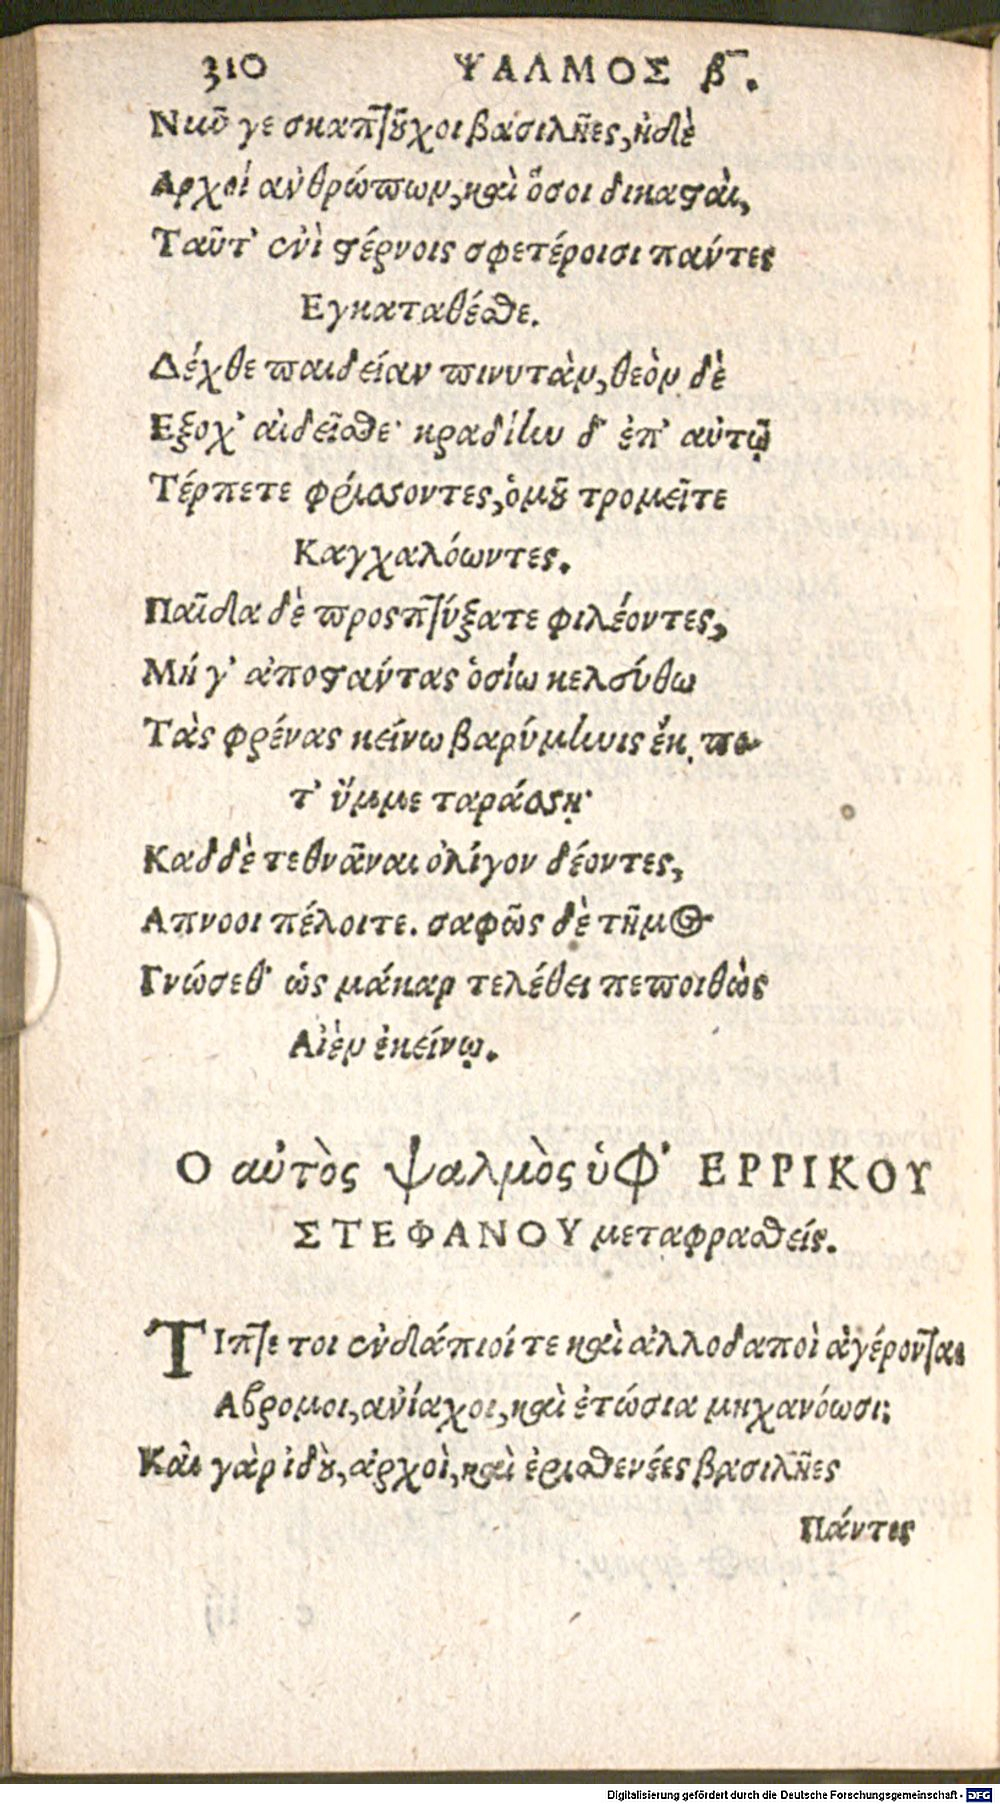 310 ΨΑΛΜΟΣ β.
Νιῦ γε σκαπτοῦχοι βασιλῆες, ἠδὲ
Αρχοί ἀνθρώπων, καὶ ὅσοι δικασταὶ,
Ταῦτ' ἐνὶ στέρνοις σφετέροισι πάντες
Εγκαταθέσθε.
Δέχθε παιδείαν πινυτὰν, θεὸν δὲ
Εξοχ' αἰδεῖσθε· κραδίην δ' ἐπ' αὐτῷ
Τέρπετε φρίσσοντες, ὁμοῦ τρομεῖτε
Καγχαλόωντες.
Παῖδα δὲ προσπτύξατε φιλέοντες,
Μή γ' ἀποστάντας ὁσίω κελεύθω
Τὰς φρένας κείνω βαρύμηνις ἔκ πο-
τ' ὔμμε ταράσσῃ·
Καδδὲ τεθνᾶναι ὀλίγον δέοντες,
Απνοοι πέλοιτε. σαφῶς δὲ τῆμος
Γνώσεθ' ὡς μάκαρ τελέθει πεποιθὼς
Αἰὲν ἐκείνῳ.
Ο αὐτὸς ψαλμὸς ὑφ' ΕΡΡΙΚΟΥ
ΣΤΕΦΑΝΟΥ μεταφρασθείς.
ΤΙπτε τοι ἐνδιάπιοί τε καὶ ἀλλοδαποὶ ἀγέρονται
Αβρομοι, ἀνίαχοι, καὶ ἐτώσια μηχανόωσι;
Καὶ γὰρ ἰδοὺ, ἀρχοὶ, καὶ ἐρισθενέες βασιλῆες
Πάντες
Digitalisierung gefördert durch die Deutsche Forschungsgemeinschaft - DFG